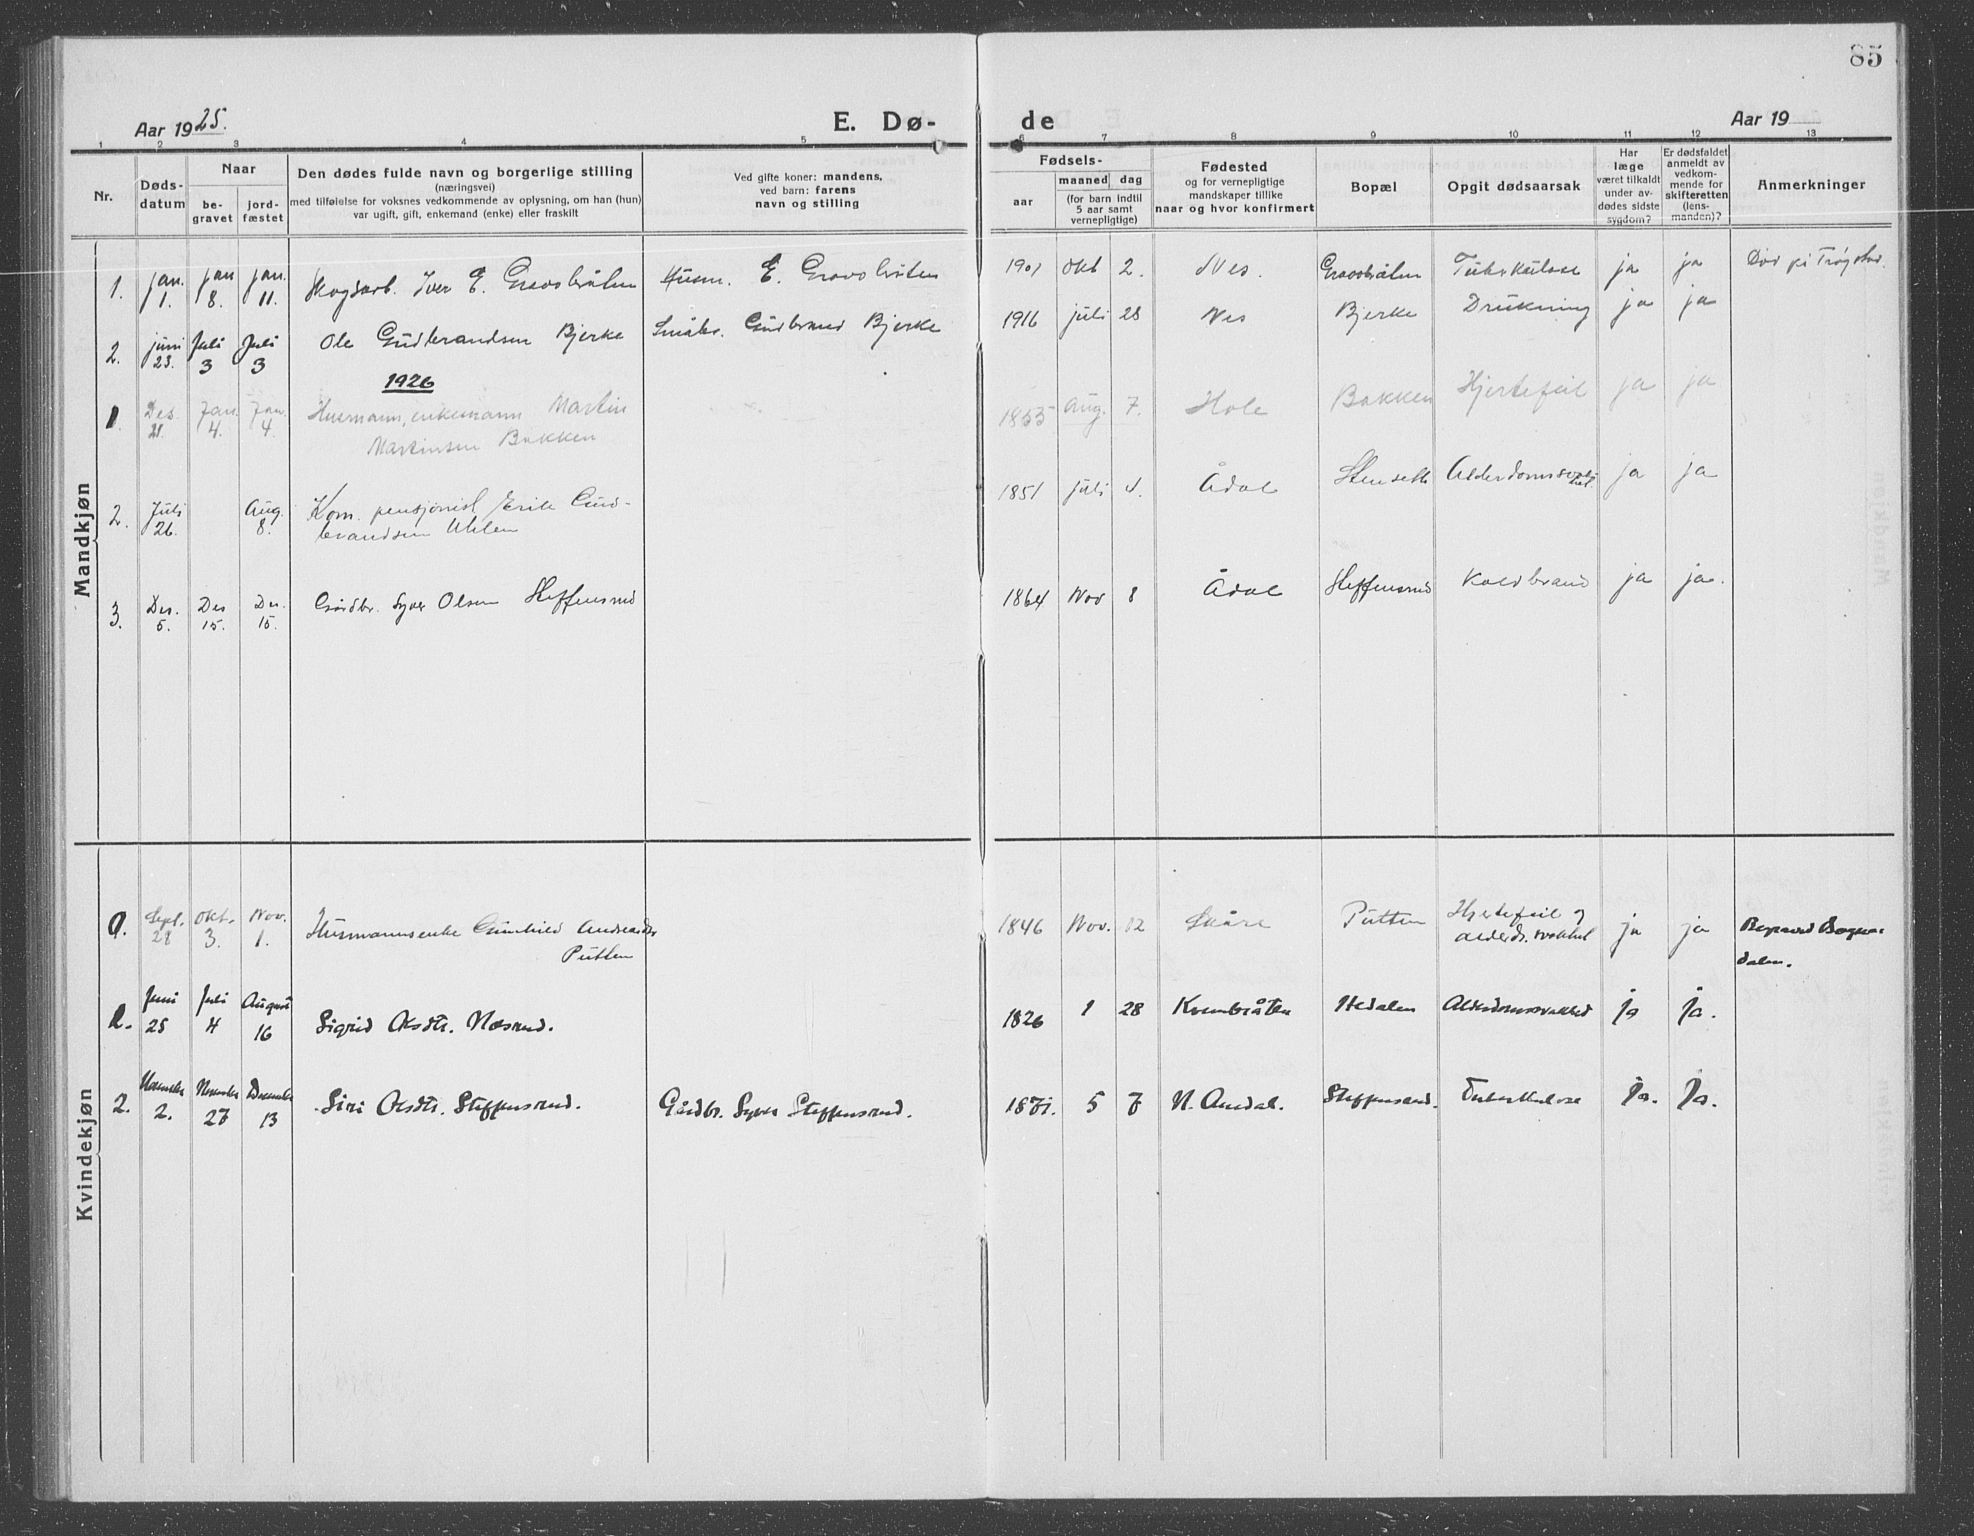 85
Aar 1925.
E. Dø-
de
Aar 19
1 2 3 4 5 6 7 8 9 10 11 12 13
Nr.
Døds-
datum
Naar
be-
gravet
jord-
fæstet
Den dødes fulde navn og borgerlige stilling
(næringsvei)
med tilføielse for voksnes vedkommende av oplysning, om han (hun)
var ugift, gift, enkemand (enke) eller fraskilt
Ved gifte koner: mandens,
ved barn: farens
navn og stilling
Fødsels-
aar
maaned
dag
(for barn indtil
5 aar samt
vernepligtige)
Fødested
og for vernepligtige
mandskaper tillike
naar og hvor konfirmert
Bopæl
Opgit dødsaarsak
Har
læge
været tilkaldt
under av-
dødes sidste
sygdom?
Er dødsfaldet
anmeldt av
vedkom-
mende for
skifteretten
(lens-
manden)?
Anmerkninger
Mandkjøn
1. Jan. 1. Jan 8. Jan. 11. Skogsarb. Iver E. Gravobråten Husm. E. Gravobråten 1901 Okt 2. Nes. Gravobråten Tuberkulose ja ja Død på Trøgstad.
2. juni 23. Juli 3 Juli 3 Ole Gudbrandsen Bjerke Småbr. Gudbrand Bjerke 1916 juli 28 Nes Bjerke Drukning ja ja
1926
1. Des. 21. Jan. 4. Jan. 4. Husmann, enkemann Martin
Martinsen Bakken 1855 Aug. 7. Hole Bakken Hjertefeil ja ja
2. Juli 26. Aug. 8. Kom. pensjonist Erik Gud-
brandsen Uhlen 1851 juli 4. Ådal Stensett Alderdomssvak-
het ja ja
3. Des. 5. Des 15. Des. 15. Gårdbr. Syver Olsen Steffensrud 1864 Nov 8 Ådal Steffensrud Koldbrand ja ja.
Kvindekjøn
Sept. 28 Okt. 3. Nov. 1. Husmannsenke Gunhild Andreasdtr
Putten 1846 Nov. 12 Putten Hjertefeil og
alderds. svakhet ja ja Begravd Bagna-
dalen.
Juni 25 Juli 4 August 16 Sigrid Olsdtr. Næsrud. 1826 1 28 Kvembråten Hedalen Alderdomssvakhed ja ja.
2. November 2. November 27 December 13 Siri Olsdtr. Steffensrud. Gårdbr. Syver Steffensrud. 1871. 5 7 N. Aurdal. Steffensrud. Tuberkulose ja. ja.